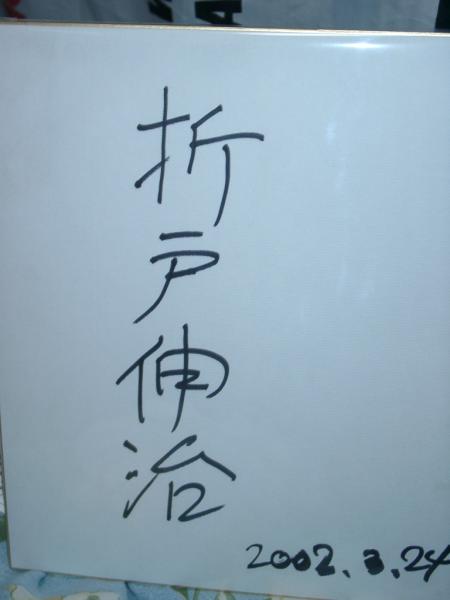 折戸伸治
2002.3.24